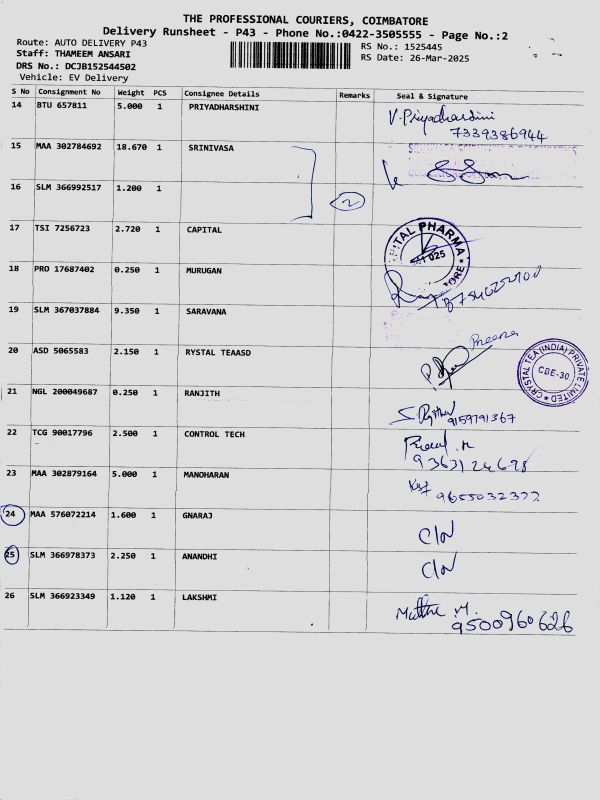 THE PROFESSIONAL COURIERS, COIMBATORE
Delivery Runsheet - P43 - Phone No.:0422-3505555 - Page No.:2
Route: AUTO DELIVERY P43
Staff: THAMEEM ANSARI
DRS No.: DCJB152544502
Vehicle: EV Delivery
RS No.: 1525445
RS Date: 26-Mar-2025
S No Consignment No Weight PCS Consignee Details Remarks Seal & Signature
14 BTU 657811 5.000 1 PRIYADHARSHINI V.Priyadharshini
7339386944
15 MAA 302784692 18.670 1 SRINIVASA
16 SLM 366992517 1.200 1 2
17 TSI 7256723 2.720 1 CAPITAL
PHARMA
025
18 PRO 17687402 0.250 1 MURUGAN
19 SLM 367037884 9.350 1 SARAVANA
20 ASD 5065583 2.150 1 RYSTAL TEAASD
CRYSTAL TEA (INDIA) PRIVATE LIMITED
CBE-30
21 NGL 200049687 0.250 1 RANJITH
9159791367
22 TCG 90017796 2.500 1 CONTROL TECH
23 MAA 302879164 5.000 1 MANOHARAN
9655032322
24 MAA 576072214 1.600 1 GNARAJ
25 SLM 366978373 2.250 1 ANANDHI
26 SLM 366923349 1.120 1 LAKSHMI
9500960626